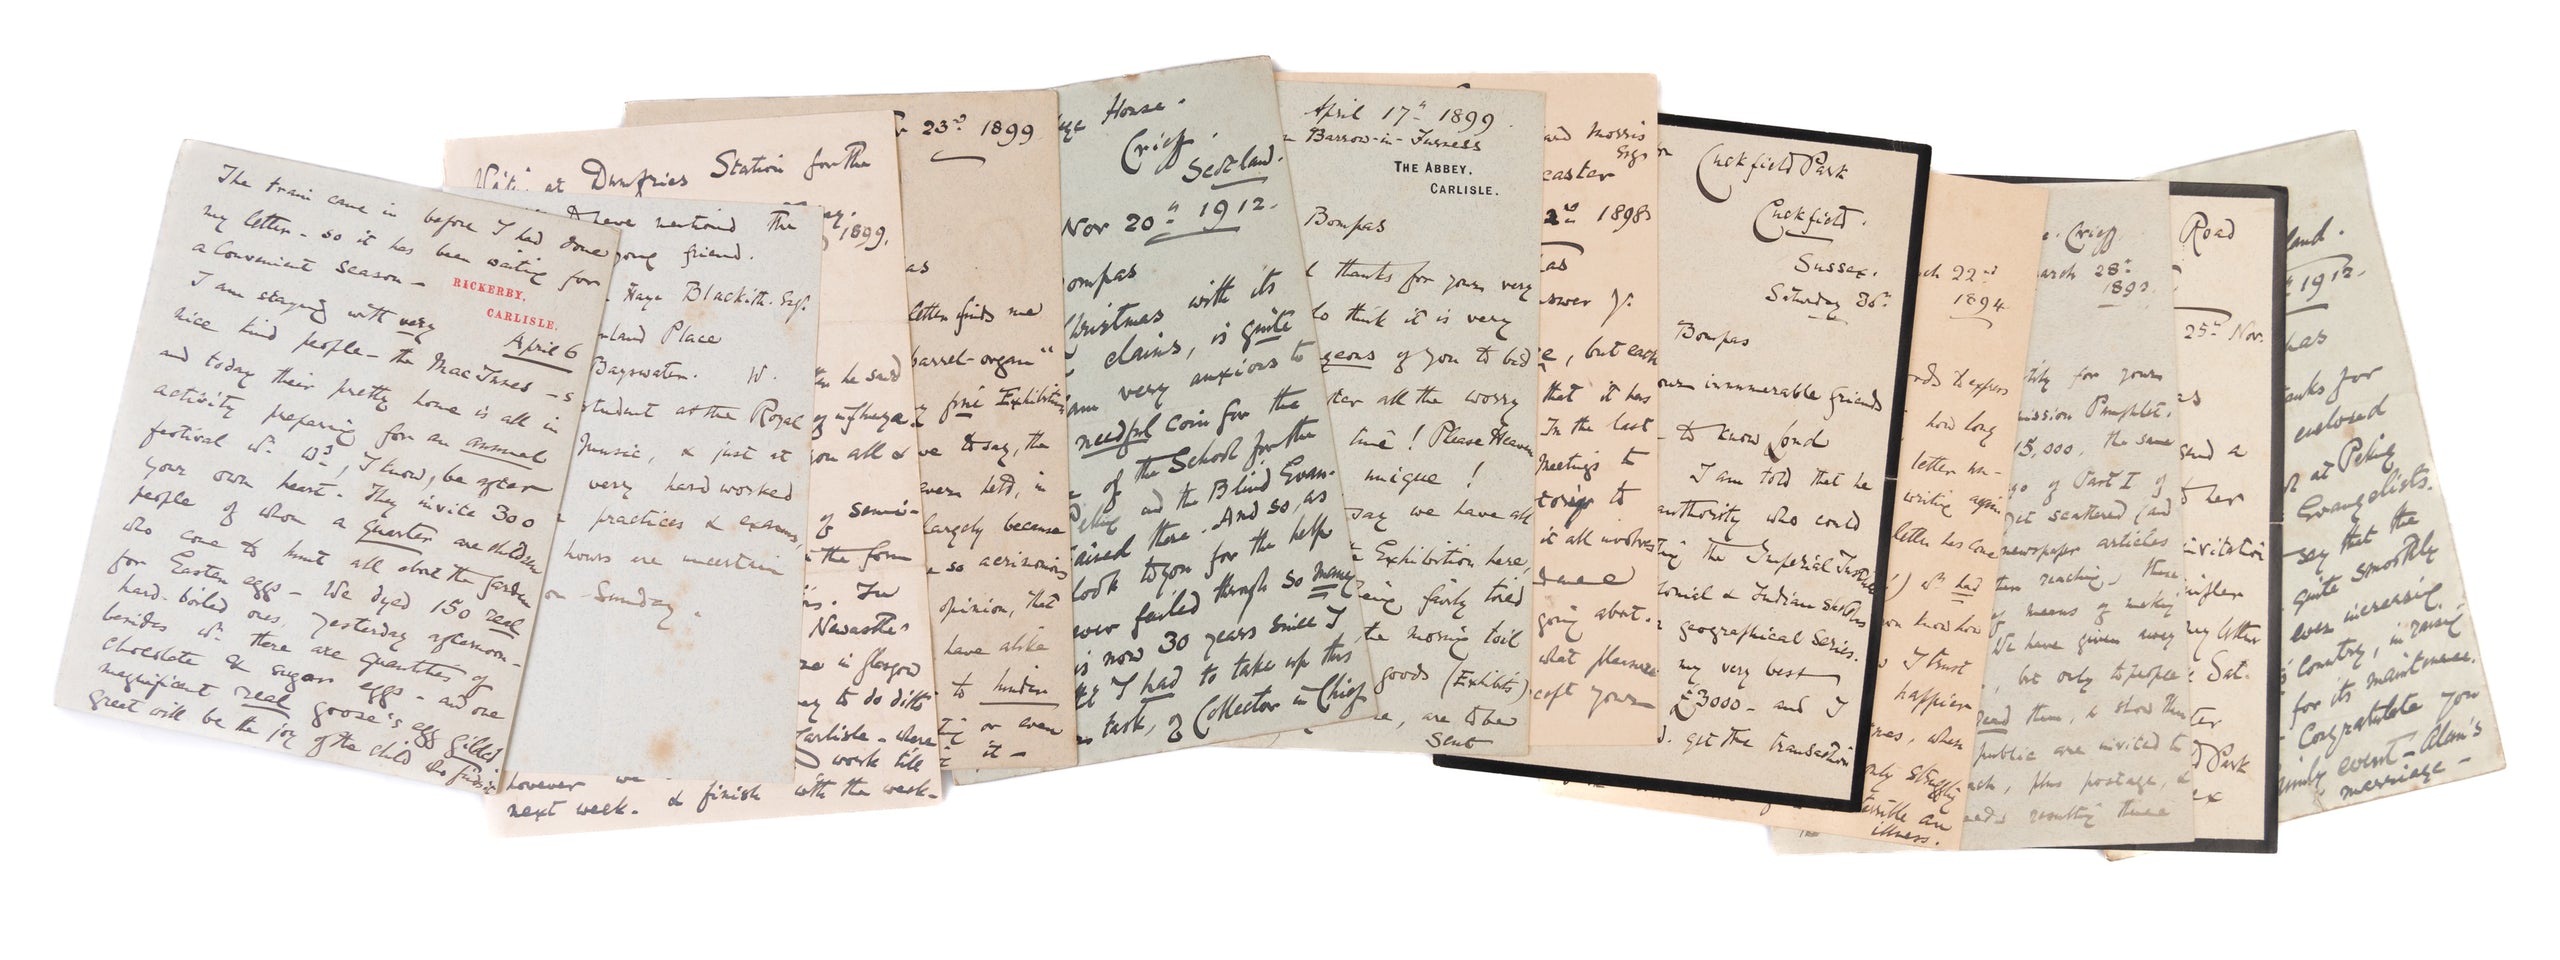 The train came in before I had done
my letter - so it has been waiting for
a convenient season -
RICKERBY,
CARLISLE.
April 6
I am staying with very
nice kind people - the MacInnes - s
and today their pretty home is all in
activity preparing for an annual
festival wh. wd, I know, be after
your own heart. They invite 300
people of whom a quarter are children
who come to hunt all about the garden
for Easter eggs - We dyed 150 real
hard-boiled ones, yesterday afternoon -
besides wh there are quantities of
chocolate & sugar eggs - and one
magnificent real goose's egg gilded
great will be the joy of the child who finds it
at Dumfries Station for the
1899.
have mentioned the
young friend.
Haye Blackith. Esqr.
land Place
Bayswater. W.
student at the Royal
Music, & just at
very hard worked
practices & exams,
hours are uncertain
on Sunday.
he said
of influenza.
you all &
of semi-
in the form
In
Newcastle
in Glasgow
to do ditto
Carlisle - where
work till
however we
next week. & finish with the week-
23rd 1899
as
letter finds me
barrel-organ"
fine Exhibition
to say, the
ever held, in
largely because
so acrimonious
opinion, that
have alike
to hinder
or even
it -
House.
Crieff.
Scotland.
Nov 20th 1912.
ompas
Christmas with its
claims, is quite
am very anxious to
needful coin for the
of the School for the
Peking and the Blind Evan-
ained there. And so, as
look to you for the help
ever failed through so many
is now 30 years since I
I had to take up this
task, of Collector in Chief
April 17th 1899
Barrow-in-Furness
THE ABBEY,
CARLISLE.
Bompas
thanks for yours very
to think it is very
geous of you to bid
ter all the worry
time! Please Heaven
unique!
say we have all
Exhibition here,
being fairly tired
the morning toil
goods (Exhibits)
are, to be
sent
and Morris
Esqr
caster
2nd 1898
as
answer yr.
but each
that it has
In the last
Meetings to
to
it all involves
going about.
what pleasure
yours
Cuckfield Park
Cuckfield.
Sussex.
Saturday 26th
Bompas
own innumerable friends
to know fond
I am told that he
authority who could
the Imperial Institute
Colonial & Indian
geographical Series.
my very best
£3000 - and I
get the transaction
ch 22nd
1894
words to express
how long
letter un-
writing again
letter has come
wh had
you know how
I trust
happier
when
only struggling
terrible an
illness.
Crieff
March 28th
1893
for yours
mission Pamphlet.
15,000, the same
ago of Part I of
get scattered (and
newspaper articles
then reaching - these
means of making
We have given away
but only to people
read them, & show them
public are invited to
each, plus postage, &
resulting these
Road
25th Nov.
as
send a
to her
invitation
my letter
Sat-
ter
Park
ex
land.
1912.
has
thanks for
enclosed
at Peking
Evangelists.
say that the
quite smoothly
ever increasing
country, in raising
for its maintenance.
Congratulate you
family event - Alan's
marriage -